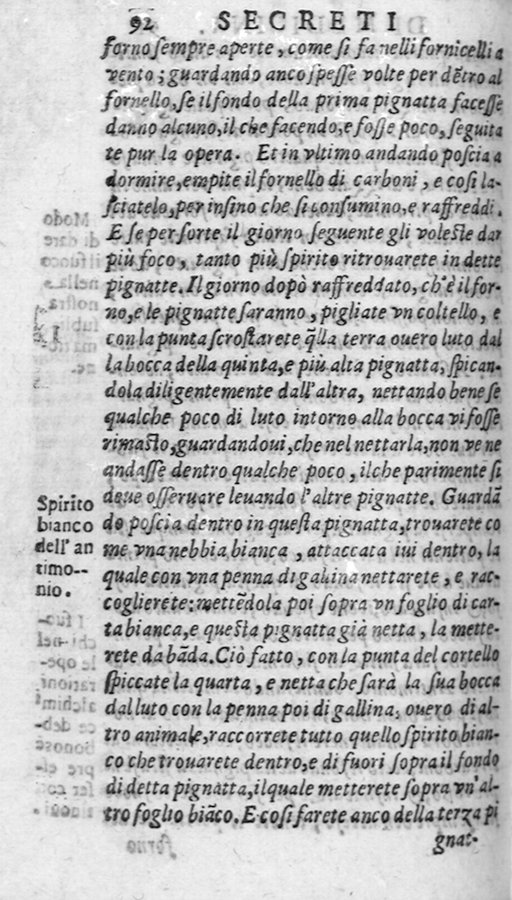 92 SECRETI
forno sempre aperte, come si fa nelli fornicelli a
vento; guardando anco spesse volte per dẽtro al
fornello, se il fondo della prima pignatta facesse
danno alcuno, il che facendo, e fosse poco, seguita
te pur la opera. Et in vltimo andando poscia a
dormire, empite il fornello di carboni, e cosi la-
sciatelo, per insino che si consumino, e raffreddi.
E se per sorte il giorno seguente gli voleste dar
più foco, tanto più spirito ritrouarete in dette
pignatte. Il giorno dopò raffreddato, ch'è il for-
no, e le pignatte saranno, pigliate vn coltello, e
con la punta scrostarete q̃lla terra ouero luto dal
la bocca della quinta, e più alta pignatta, spican-
dola diligentemente dall'altra, nettando bene se
qualche poco di luto intorno alla bocca vi fosse
rimasto, guardandoui, che nel nettarla, non ve ne
andasse dentro qualche poco, ilche parimente si
deue osseruare leuando l'altre pignatte. Guardã
do poscia dentro in questa pignatta, trouarete co
me vna nebbia bianca, attaccata iui dentro, la
quale con vna penna di gallina nettarete, e rac-
coglierete: mettẽdola poi sopra vn foglio di car-
ta bianca, e questa pignatta già netta, la mette-
rete da bãda. Ciò fatto, con la punta del cortello
spiccate la quarta, e netta che sarà la sua bocca
dal luto con la penna poi di gallina, ouero di al-
tro animale, raccorrete tutto quello spirito bian-
co che trouarete dentro, e di fuori sopra il fondo
di detta pignatta, il quale metterete sopra vn'al-
tro foglio biãco. E cosi farete anco della terza pi
gnat-
Spirito
bianco
dell'an
timo--
nio.